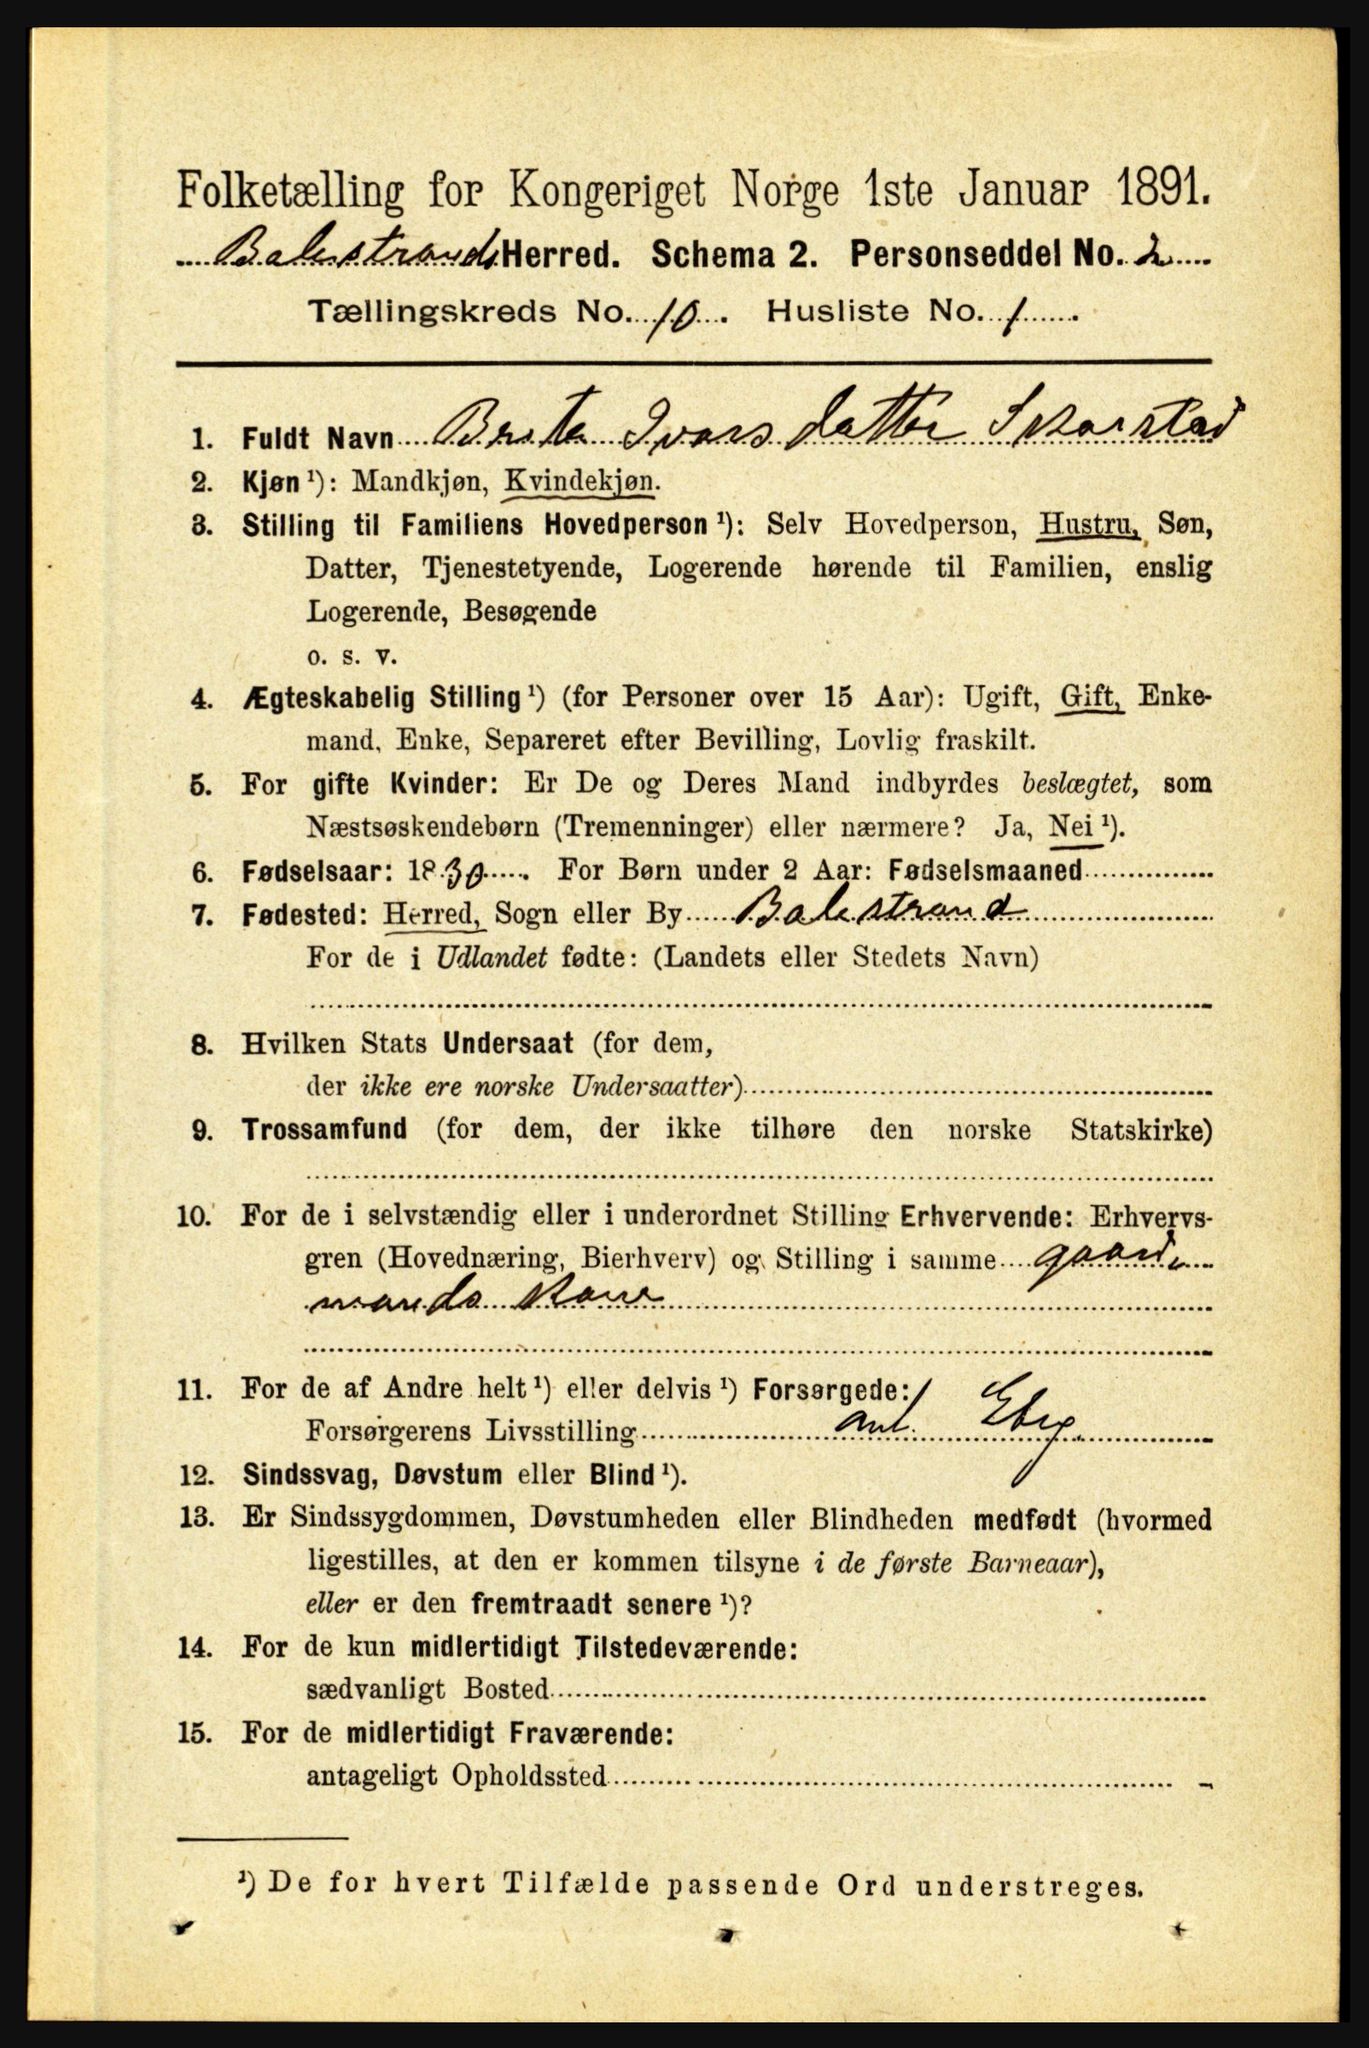 Folketælling for Kongeriget Norge 1ste Januar 1891.
Balestrands Herred. Schema 2. Personseddel No. 2
Tællingskreds No. 10. Husliste No. 1
1. Fuldt Navn Brita Ivarsdatter Skarstad
2. Kjøn ¹): Mandkjøn, Kvindekjøn.
3. Stilling til Familiens Hovedperson ¹): Selv Hovedperson, Hustru, Søn,
Datter, Tjenestetyende, Logerende hørende til Familien, enslig
Logerende, Besøgende
o. s. v.
4. Ægteskabelig Stilling ¹) (for Personer over 15 Aar): Ugift, Gift, Enke-
mand, Enke, Separeret efter Bevilling, Lovlig fraskilt.
5. For gifte Kvinder: Er De og Deres Mand indbyrdes beslægtet, som
Næstsøskendebørn (Tremenninger) eller nærmere? Ja, Nei ¹).
6. Fødselsaar: 1830. For Børn under 2 Aar: Fødselsmaaned
7. Fødested: Herred, Sogn eller By Balestrand
For de i Udlandet fødte: (Landets eller Stedets Navn)
8. Hvilken Stats Undersaat (for dem,
der ikke ere norske Undersaatter)
9. Trossamfund (for dem, der ikke tilhøre den norske Statskirke)
10. For de i selvstændig eller i underordnet Stilling Erhvervende: Erhvervs-
gren (Hovednæring, Bierhverv) og Stilling i samme gaard-
mands kone
11. For de af Andre helt ¹) eller delvis ¹) Forsørgede:
Forsørgerens Livsstilling
12. Sindssvag, Døvstum eller Blind ¹).
13. Er Sindssygdommen, Døvstumheden eller Blindheden medfødt (hvormed
ligestilles, at den er kommen tilsyne i de første Barneaar),
eller er den fremtraadt senere ¹)?
14. For de kun midlertidigt Tilstedeværende:
sædvanligt Bosted
15. For de midlertidigt Fraværende:
antageligt Opholdssted
¹) De for hvert Tilfælde passende Ord understreges.